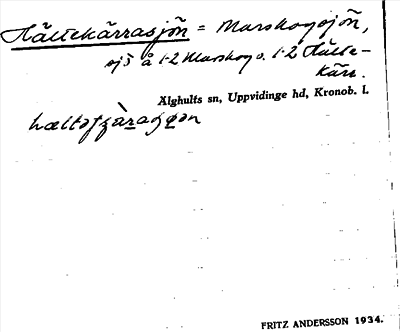 Hältekärrasjön = Marskogssjön,
sjö å 1-2 Marskog o. 1-2 Hälte-
kärr.
Älghults sn, Uppvidinge hd, Kronob. l.
FRITZ ANDERSSON 1934.